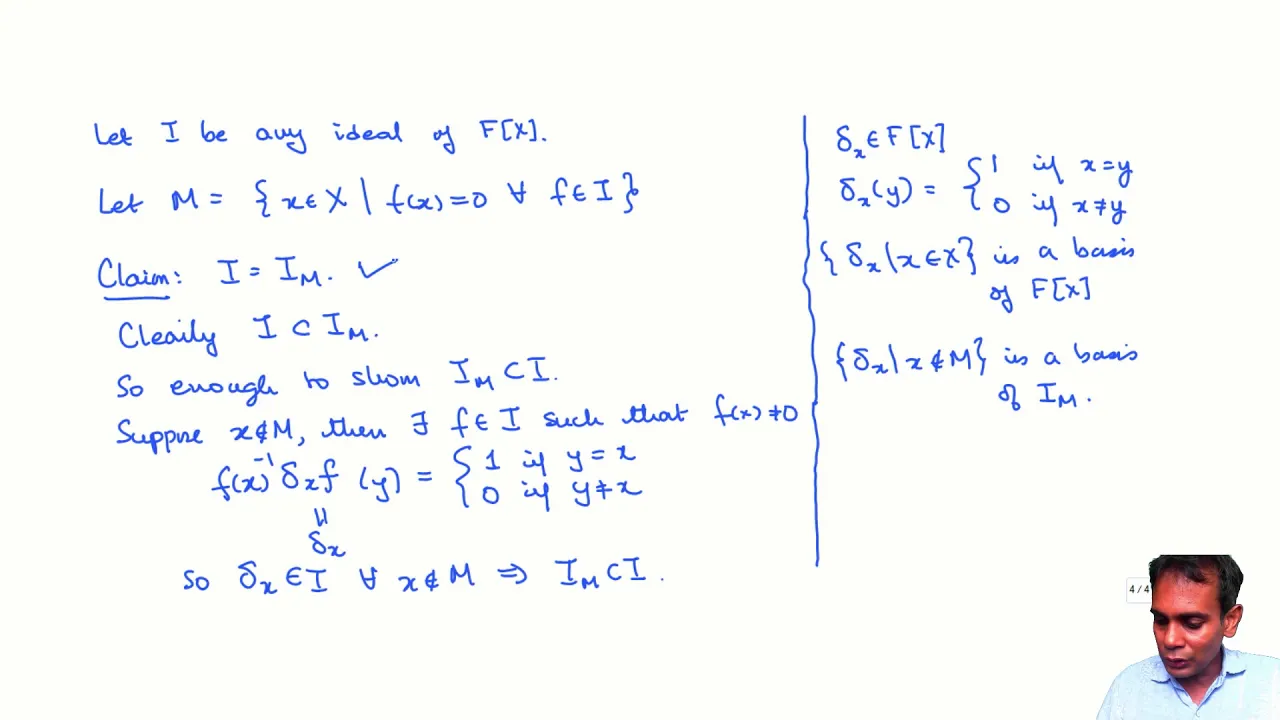 Let I be any ideal of F[X].
Let M = { x ∈ X | f(x) = 0 ∀ f ∈ I }
Claim: I = I_M. ✓
Clearly I ⊂ I_M.
So enough to show I_M ⊂ I.
Suppose x ∉ M, then ∃ f ∈ I such that f(x) ≠ 0
f(x)⁻¹ δ_x f (y) = { 1 if y = x
0 if y ≠ x
=
δ_x
So δ_x ∈ I ∀ x ∉ M ⇒ I_M ⊂ I.
δ_x ∈ F[X]
δ_x(y) = { 1 if x = y
0 if x ≠ y
{ δ_x | x ∈ X } is a basis
of F[X]
{ δ_x | x ∉ M } is a basis
of I_M.
4 / 4